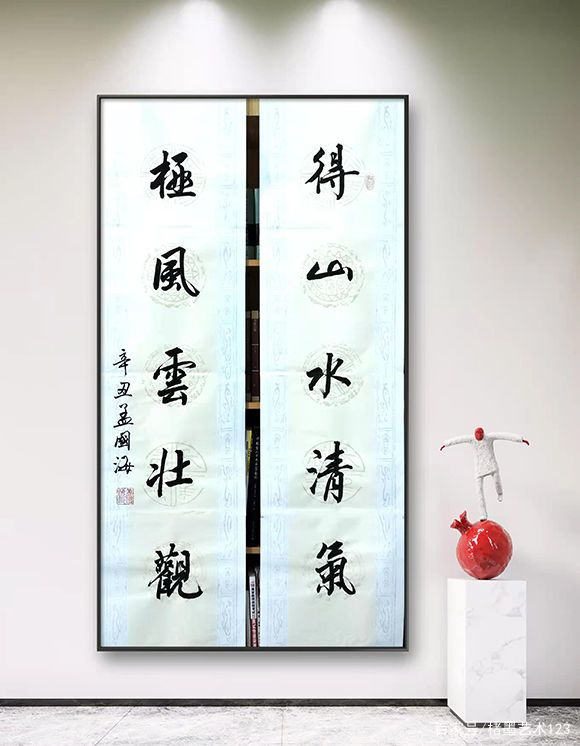 得山水清氣
極風雲壯觀
辛丑孟國海
百家号/楮墨艺术123